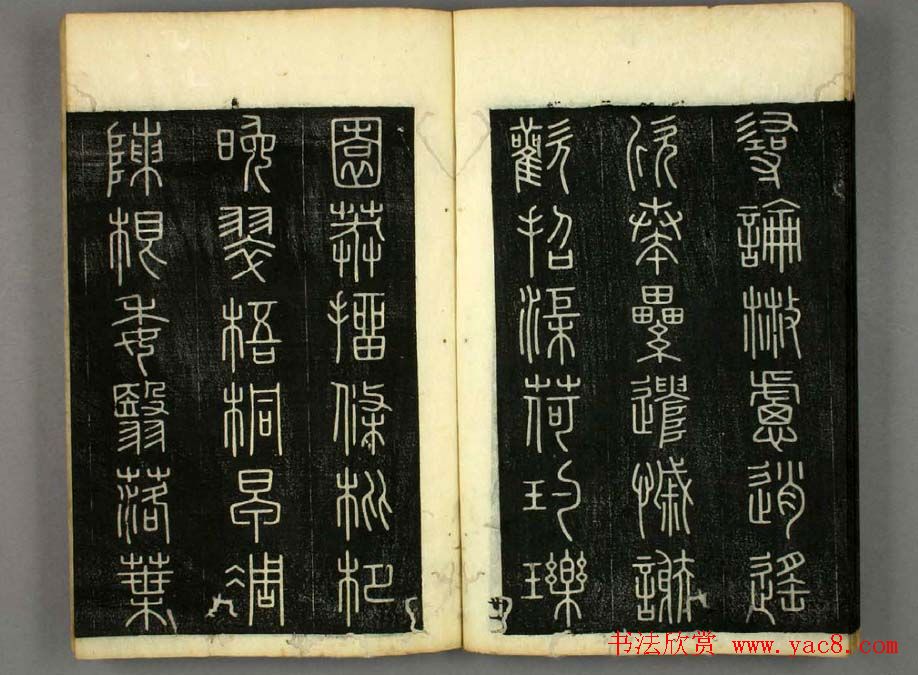 尋論散慮逍遙
欣奏纍遣慼謝
歡招渠荷玓瓅
園莽抽條枇杷
晚翠梧桐早凋
陳根委翳落葉
书法欣赏 www.yac8.com